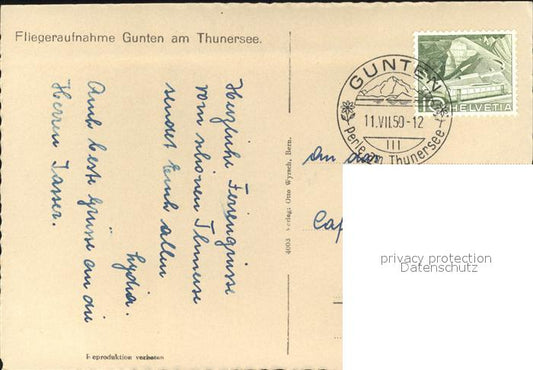 Fliegeraufnahme Gunten am Thunersee.
Herzliche Feriengrüsse
vom schönen Thunersee
sendet Euch allen
Lydia.
Auch beste Grüsse an die
Herren Tasser.
4003 Verlag: Otto Wyrsch, Bern.
Reproduktion verboten
GUNTEN
11.VII.50-12
III
Perle am Thunersee
HELVETIA
An das
Caf
privacy protection
Datenschutz